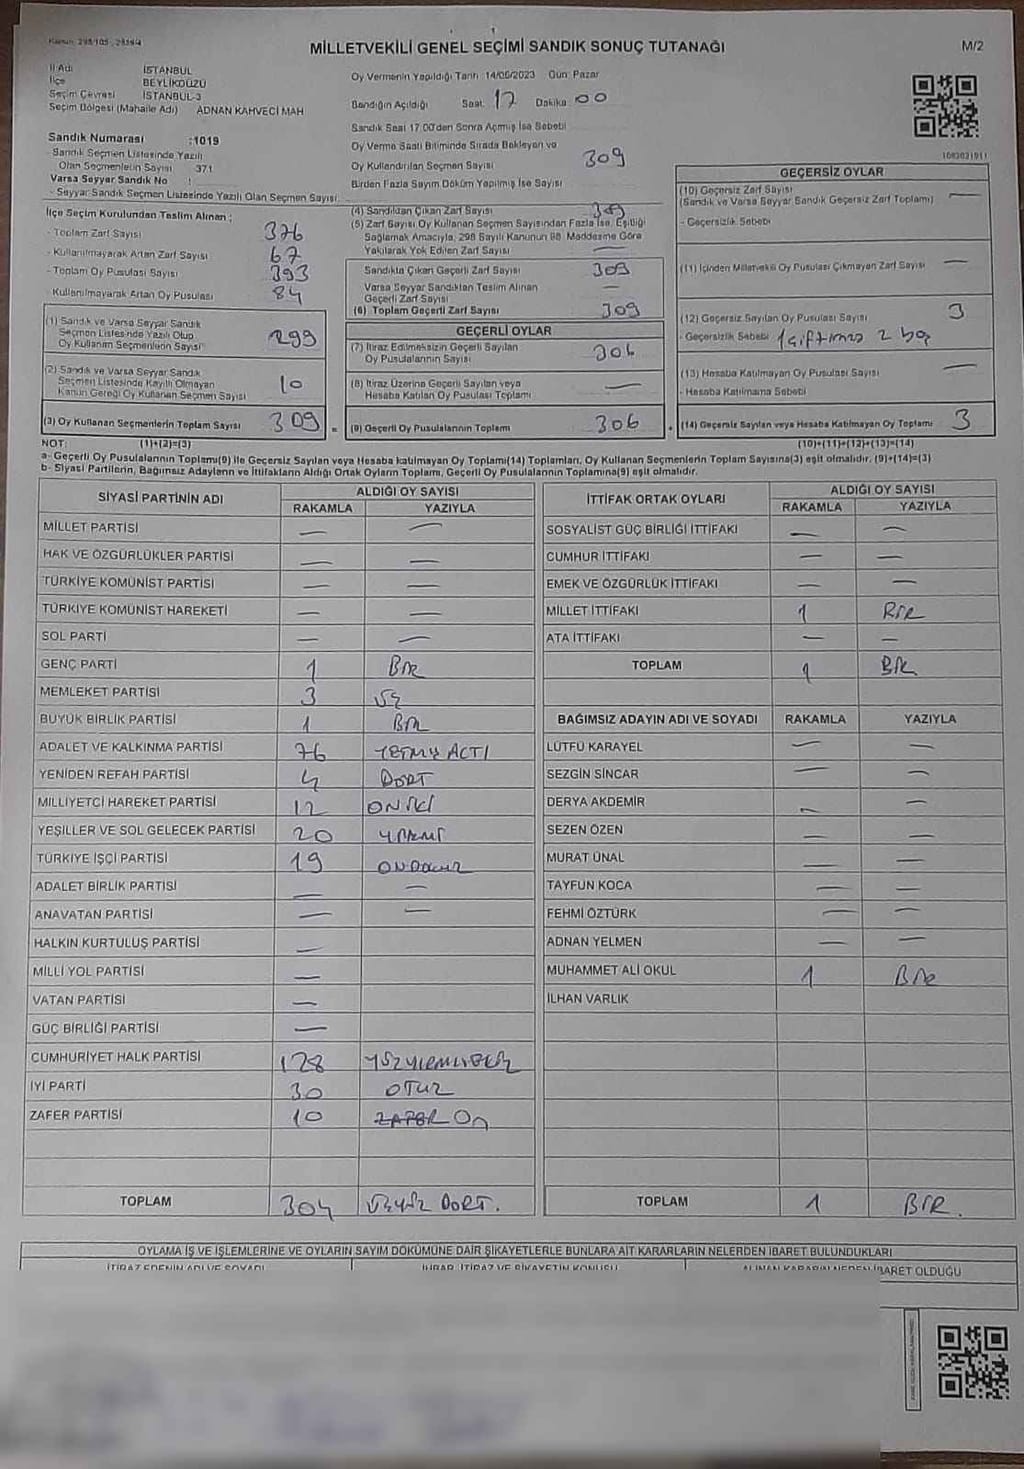 M/2
MİLLETVEKİLİ GENEL SEÇİMİ SANDIK SONUÇ TUTANAĞI
İl Adı İSTANBUL
İlçe BEYLİKDÜZÜ
Seçim Çevresi İSTANBUL-3
Seçim Bölgesi (Mahalle Adı) ADNAN KAHVECİ MAH
Sandık Numarası :1019
- Sandık Seçmen Listesinde Yazılı
Olan Seçmenlerin Sayısı 371
Varsa Seyyar Sandık No :
- Seyyar Sandık Seçmen Listesinde Yazılı Olan Seçmen Sayısı:
İlçe Seçim Kurulundan Teslim Alınan ;
- Toplam Zarf Sayısı 376
- Kullanılmayarak Artan Zarf Sayısı 67
- Toplam Oy Pusulası Sayısı 393
- Kullanılmayarak Artan Oy Pusulası 84
(1) Sandık ve Varsa Seyyar Sandık
Seçmen Listesinde Yazılı Olup
Oy Kullanan Seçmenlerin Sayısı 299
(2) Sandık ve Varsa Seyyar Sandık
Seçmen Listesinde Kayıtlı Olmayan
Kanun Gereği Oy Kullanan Seçmen Sayısı 10
(3) Oy Kullanan Seçmenlerin Toplam Sayısı 309
Oy Vermenin Yapıldığı Tarih 14/05/2023 Gün: Pazar
Sandığın Açıldığı Saat 17 Dakika 00
Sandık Saat 17:00'den Sonra Açılmış İse Sebebi
Oy Verme Saati Bitiminde Sırada Bekleyen ve
Oy Kullandırılan Seçmen Sayısı 309
Birden Fazla Sayım Döküm Yapılmış İse Sayısı
(4) Sandıktan Çıkan Zarf Sayısı 309
(5) Zarf Sayısı Oy Kullanan Seçmen Sayısından Fazla İse, Eşitliği
Sağlamak Amacıyla, 298 Sayılı Kanunun 98. Maddesine Göre
Yakılarak Yok Edilen Zarf Sayısı —
Sandıkta Çıkan Geçerli Zarf Sayısı 309
Varsa Seyyar Sandıktan Teslim Alınan
Geçerli Zarf Sayısı —
(6) Toplam Geçerli Zarf Sayısı 309
GEÇERLİ OYLAR
(7) İtiraz Edilmeksizin Geçerli Sayılan
Oy Pusulalarının Sayısı 306
(8) İtiraz Üzerine Geçerli Sayılan veya
Hesaba Katılan Oy Pusulası Toplamı —
(9) Geçerli Oy Pusulalarının Toplamı 306
GEÇERSİZ OYLAR
(10) Geçersiz Zarf Sayısı —
(Sandık ve Varsa Seyyar Sandık Geçersiz Zarf Toplamı)
- Geçersizlik Sebebi
(11) İçinden Milletvekili Oy Pusulası Çıkmayan Zarf Sayısı —
(12) Geçersiz Sayılan Oy Pusulası Sayısı 3
- Geçersizlik Sebebi 1 çift mas 2 boş
(13) Hesaba Katılmayan Oy Pusulası Sayısı —
- Hesaba Katılmama Sebebi
(14) Geçersiz Sayılan veya Hesaba Katılmayan Oy Toplamı 3
NOT: (1)+(2)=(3) (10)+(11)+(12)+(13)=(14)
a- Geçerli Oy Pusulalarının Toplamı(9) ile Geçersiz Sayılan veya Hesaba katılmayan Oy Toplamı(14) Toplamları, Oy Kullanan Seçmenlerin Toplam Sayısına(3) eşit olmalıdır. (9)+(14)=(3)
b- Siyasi Partilerin, Bağımsız Adayların ve İttifakların Aldığı Ortak Oyların Toplamı, Geçerli Oy Pusulalarının Toplamına(9) eşit olmalıdır.
SİYASİ PARTİNİN ADI ALDIĞI OY SAYISI
RAKAMLA YAZIYLA
MİLLET PARTİSİ — —
HAK VE ÖZGÜRLÜKLER PARTİSİ — —
TÜRKİYE KOMÜNİST PARTİSİ — —
TÜRKİYE KOMÜNİST HAREKETİ — —
SOL PARTİ — —
GENÇ PARTİ 1 BİR
MEMLEKET PARTİSİ 3 ÜÇ
BÜYÜK BİRLİK PARTİSİ 1 BİR
ADALET VE KALKINMA PARTİSİ 76 YETMİŞ ALTI
YENİDEN REFAH PARTİSİ 4 DÖRT
MİLLİYETÇİ HAREKET PARTİSİ 12 ON İKİ
YEŞİLLER VE SOL GELECEK PARTİSİ 20 YİRMİ
TÜRKİYE İŞÇİ PARTİSİ 19 ONDOKUZ
ADALET BİRLİK PARTİSİ — —
ANAVATAN PARTİSİ — —
HALKIN KURTULUŞ PARTİSİ —
MİLLİ YOL PARTİSİ —
VATAN PARTİSİ —
GÜÇ BİRLİĞİ PARTİSİ —
CUMHURİYET HALK PARTİSİ 128 YÜZYİRMİSEKİZ
İYİ PARTİ 30 OTUZ
ZAFER PARTİSİ 10 ZAFER On
TOPLAM 304 ÜÇYÜZ DÖRT.
İTTİFAK ORTAK OYLARI ALDIĞI OY SAYISI
RAKAMLA YAZIYLA
SOSYALİST GÜÇ BİRLİĞİ İTTİFAKI — —
CUMHUR İTTİFAKI — —
EMEK VE ÖZGÜRLÜK İTTİFAKI — —
MİLLET İTTİFAKI 1 BİR
ATA İTTİFAKI — —
TOPLAM 1 BİR
BAĞIMSIZ ADAYIN ADI VE SOYADI RAKAMLA YAZIYLA
LÜTFÜ KARAYEL — —
SEZGİN SİNCAR — —
DERYA AKDEMİR — —
SEZEN ÖZEN — —
MURAT ÜNAL — —
TAYFUN KOCA — —
FEHMİ ÖZTÜRK — —
ADNAN YELMEN — —
MUHAMMET ALİ OKUL 1 BİR
İLHAN VARLIK
TOPLAM 1 BİR.
OYLAMA İŞ VE İŞLEMLERİNE VE OYLARIN SAYIM DÖKÜMÜNE DAİR ŞİKAYETLERLE BUNLARA AİT KARARLARIN NELERDEN İBARET BULUNDUKLARI
İTİRAZ EDENİN ADI VE SOYADI İHBAR, İTİRAZ VE ŞİKAYETİN KONUSU ALINAN KARARIN NEDEN İBARET OLDUĞU